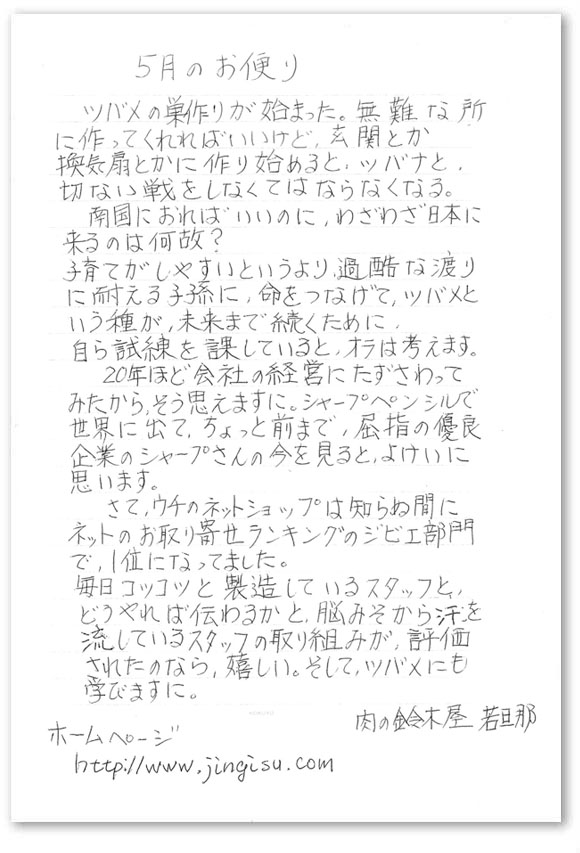 5月のお便り
ツバメの巣作りが始まった。無難な所
に作ってくれればいいけど、玄関とか
換気扇とかに作り始めると、ツバナと、
切ない戦をしなくてはならなくなる。
南国におればいいのに、わざわざ日本に
来るのは何故?
子育てがしやすいというより、過酷な渡り
に耐える子孫に、命をつなげて、ツバメと
いう種が、未来まで続くために、
自ら試練を課していると、オラは考えます。
20年ほど会社の経営にたずさわって
みたから、そう思えますに。シャープペンシルで
世界に出て、ちょっと前まで、屈指の優良
企業のシャープさんの今を見ると、よけいに
思います。
さて、ウチのネットショップは知らぬ間に
ネットのお取り寄せランキングのジビエ部門
で、1位になってました。
毎日コツコツと製造しているスタッフと、
どうやれば伝わるかと、脳みそから汗を
流しているスタッフの取り組みが、評価
されたのなら、嬉しい。そして、ツバメにも
学びますに。
肉の鈴木屋 若旦那
ホームページ
http://www.jingisu.com